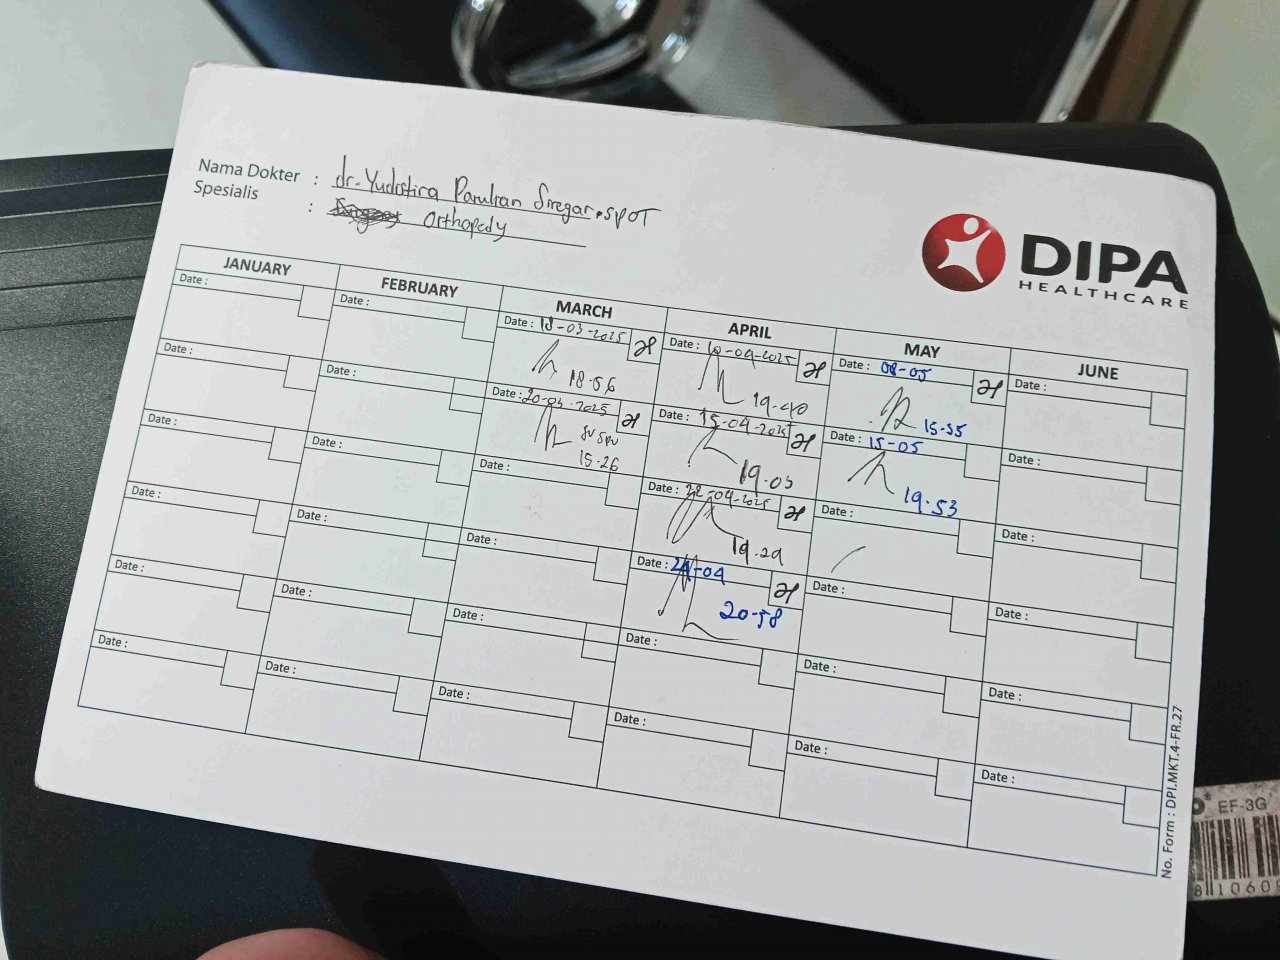 Nama Dokter : dr. Yudistira Parulian Siregar. SpOT
Spesialis : Orthopedy
DIPA
HEALTHCARE
JANUARY FEBRUARY MARCH APRIL MAY JUNE
Date : Date : Date : 18-03-2025 Date : 10-04-2025 Date : 08-05 Date :
18-56 19-40 15-55
Date : Date : Date : 20-03-2025 Date : 15-04-2025 Date : 15-05 Date :
15-26 19-03 19-53
Date : Date : Date : Date : 22-04-2025 Date : Date :
19-29
Date : Date : Date : Date : 29-04 Date : Date :
20-58
Date : Date : Date : Date : Date : Date :
Date : Date : Date : Date : Date : Date :
No. Form : DPI.MKT.4-FR.27
EF-3G